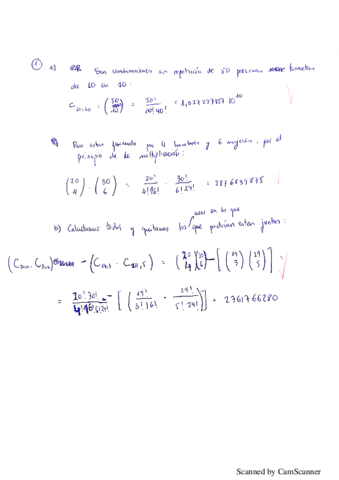 1 a) Son combinaciones sin repetición de 50 personas tomadas
de 10 en 10 :
C50,10 = (50 10) = 50! / 10! 40! = 1,027227817·10^10
Para estar formado por 4 hombres y 6 mujeres, por el
principio de la multiplicación :
(20 4) · (30 6) = 20! / 4! 16! · 30! / 6! 24! = 2876839875
b) Calculamos todos y quitamos los que podrían estar juntos :
en lo que
(C20,4 · C30,6) - (C19,3 · C29,5) = (20 4)(30 6) - [(19 3)(29 5)] =
= 20! 30! / 4! 16! 6! 24! - [(19! / 3! 16! · 29! / 5! 24!)] = 2761766280
Scanned by CamScanner